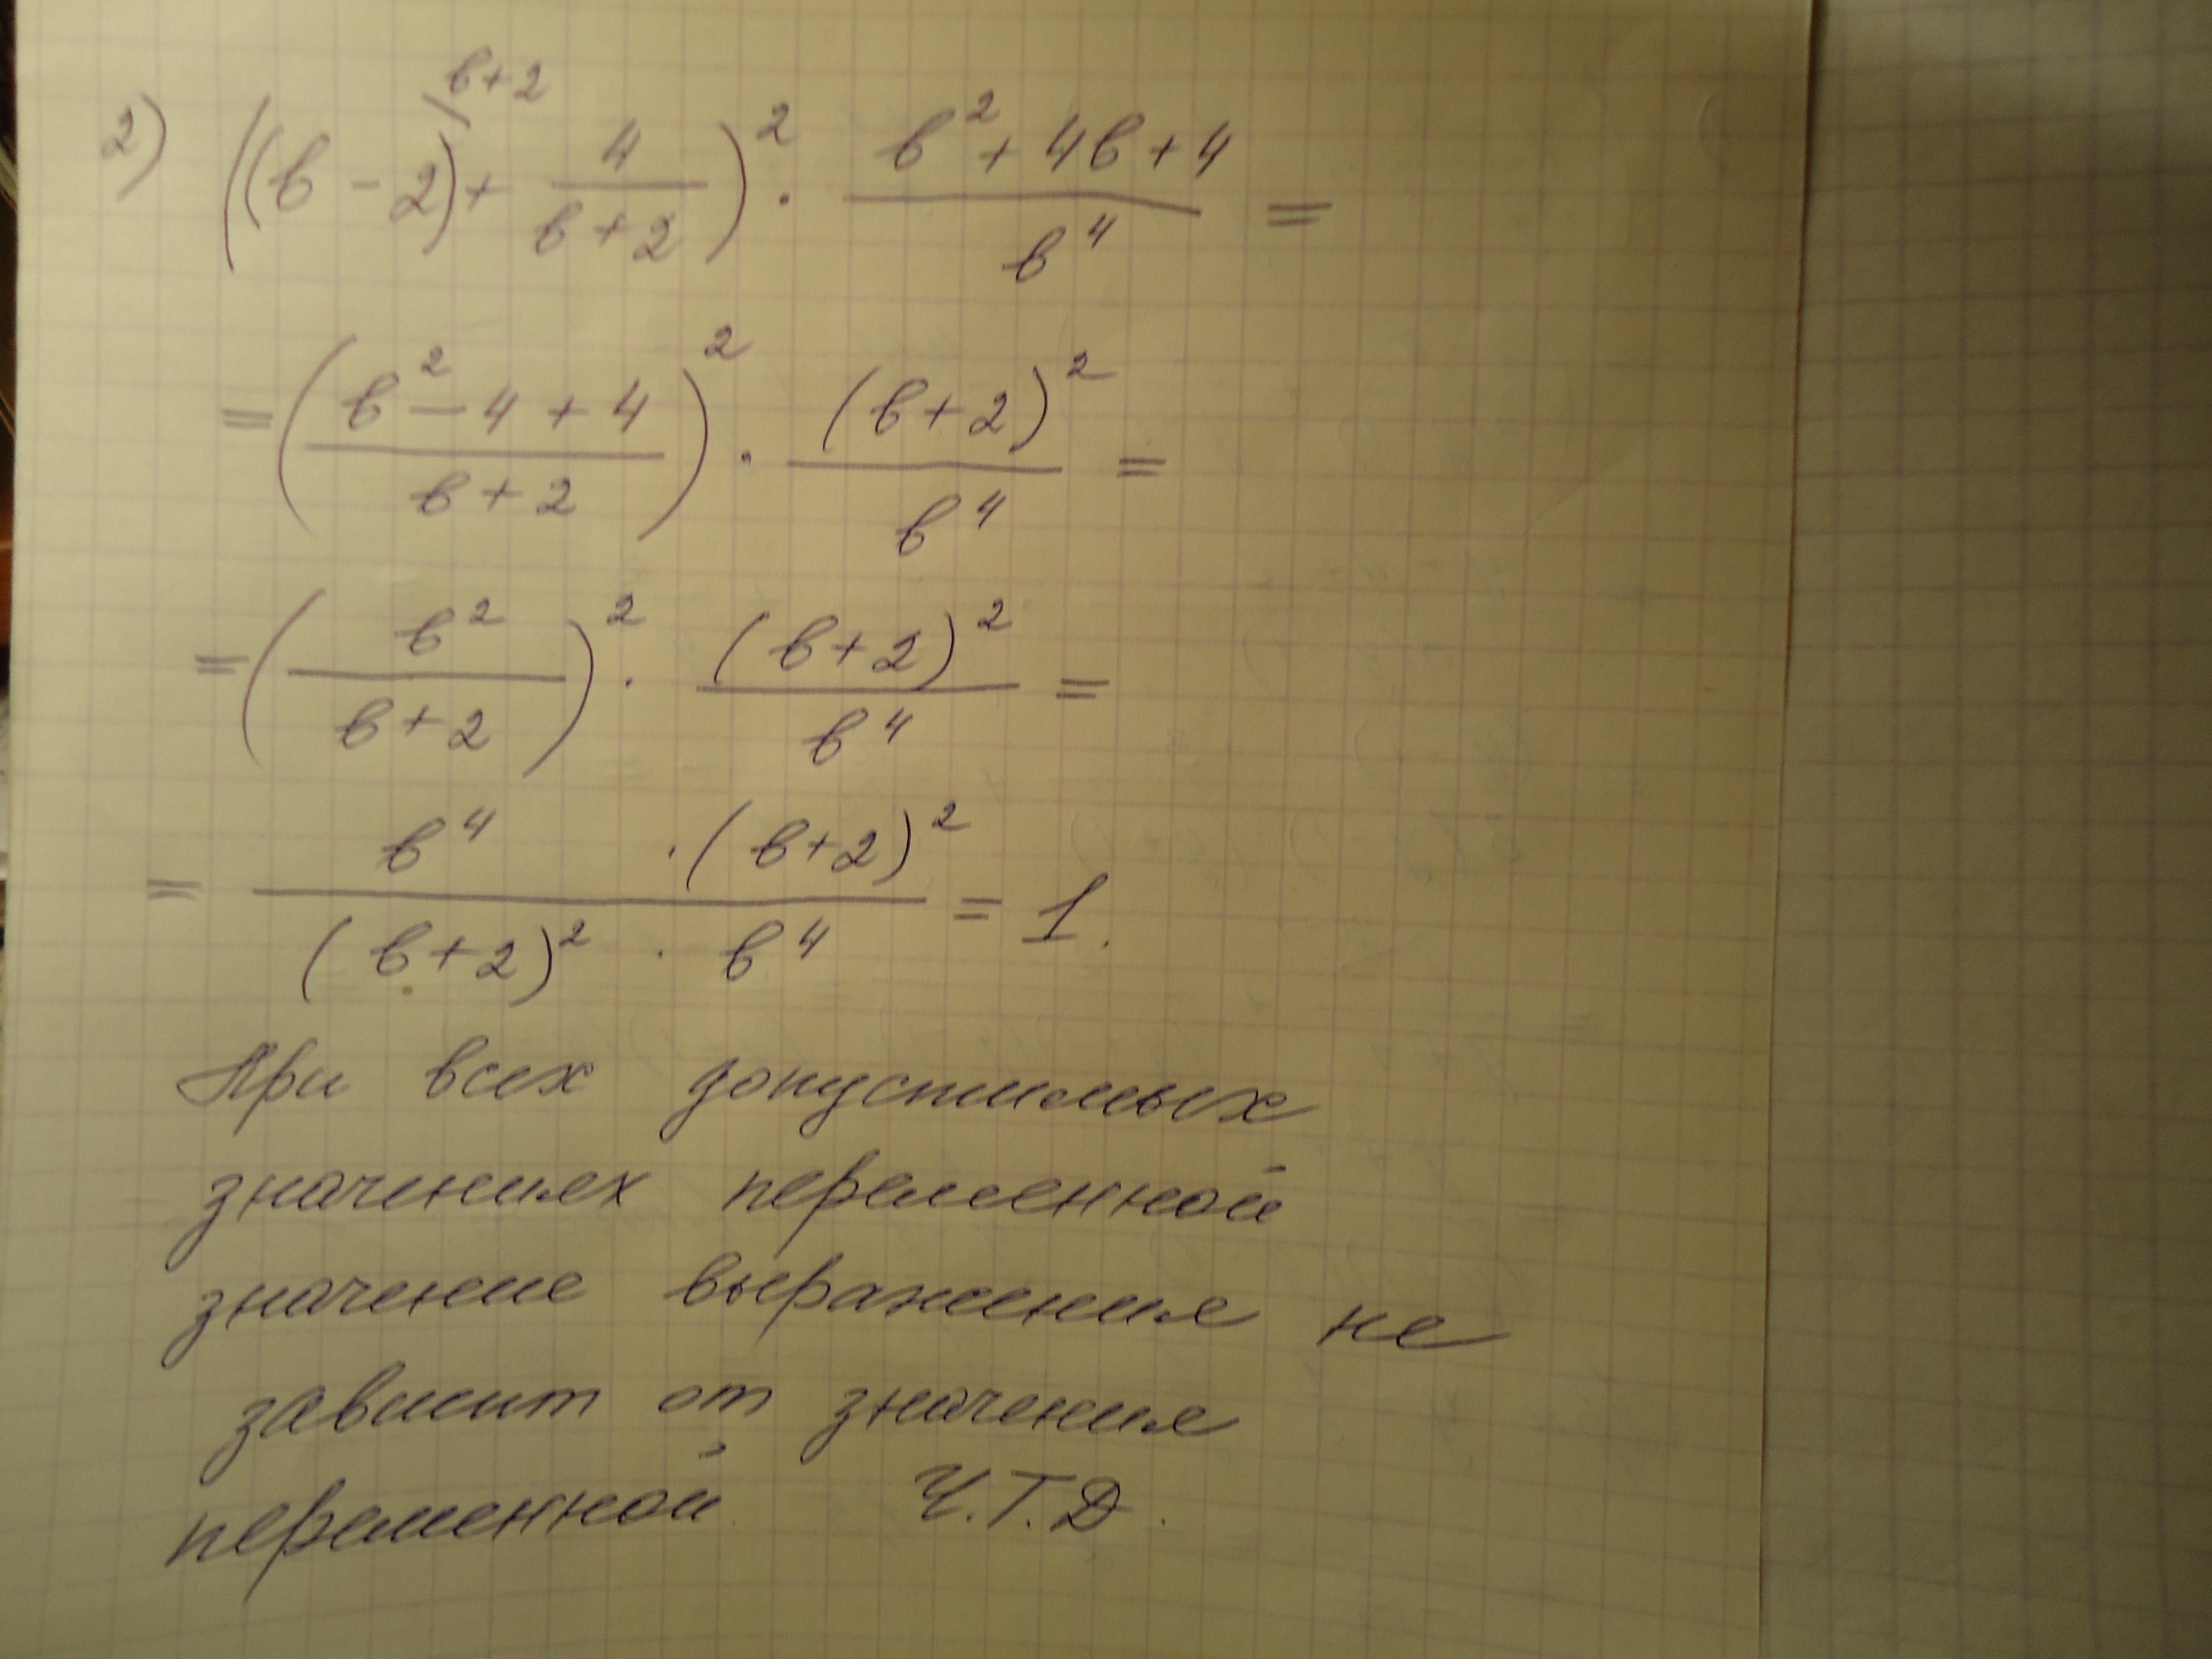 2) ((в - 2)^{\в+2} + \frac{4}{в+2})^2 · \frac{в^2 + 4в + 4}{в^4} =
= (\frac{в^2 - 4 + 4}{в + 2})^2 · \frac{(в + 2)^2}{в^4} =
= (\frac{в^2}{в + 2})^2 · \frac{(в + 2)^2}{в^4} =
= \frac{в^4 · (в+2)^2}{(в+2)^2 · в^4} = 1.
При всех допустимых
значениях переменной
значение выражения не
зависит от значения
переменной Ч.Т.Д.